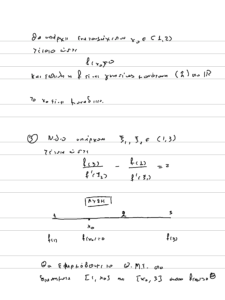 θα υπάρχει τουλάχιστον x₀ ∈ (1,3)
τέτοιο ώστε
f(x₀)=0
και επειδή η f είναι γνησίως μονότονη (1) στο ℝ
το x₀ είναι μοναδικό.
③ Νδο υπάρχουν ξ₁, ξ₂ ∈ (1,3)
τέτοια ώστε
f(3)/f'(ξ₂) - f(1)/f'(ξ₁) = 2
ΛΥΣΗ
1 2 3
x₀
f(1) f(x₀)=0 f(3)
Θα εφαρμόσουμε το Θ.Μ.Τ. στα
διαστήματα [1, x₀] και [x₀, 3]